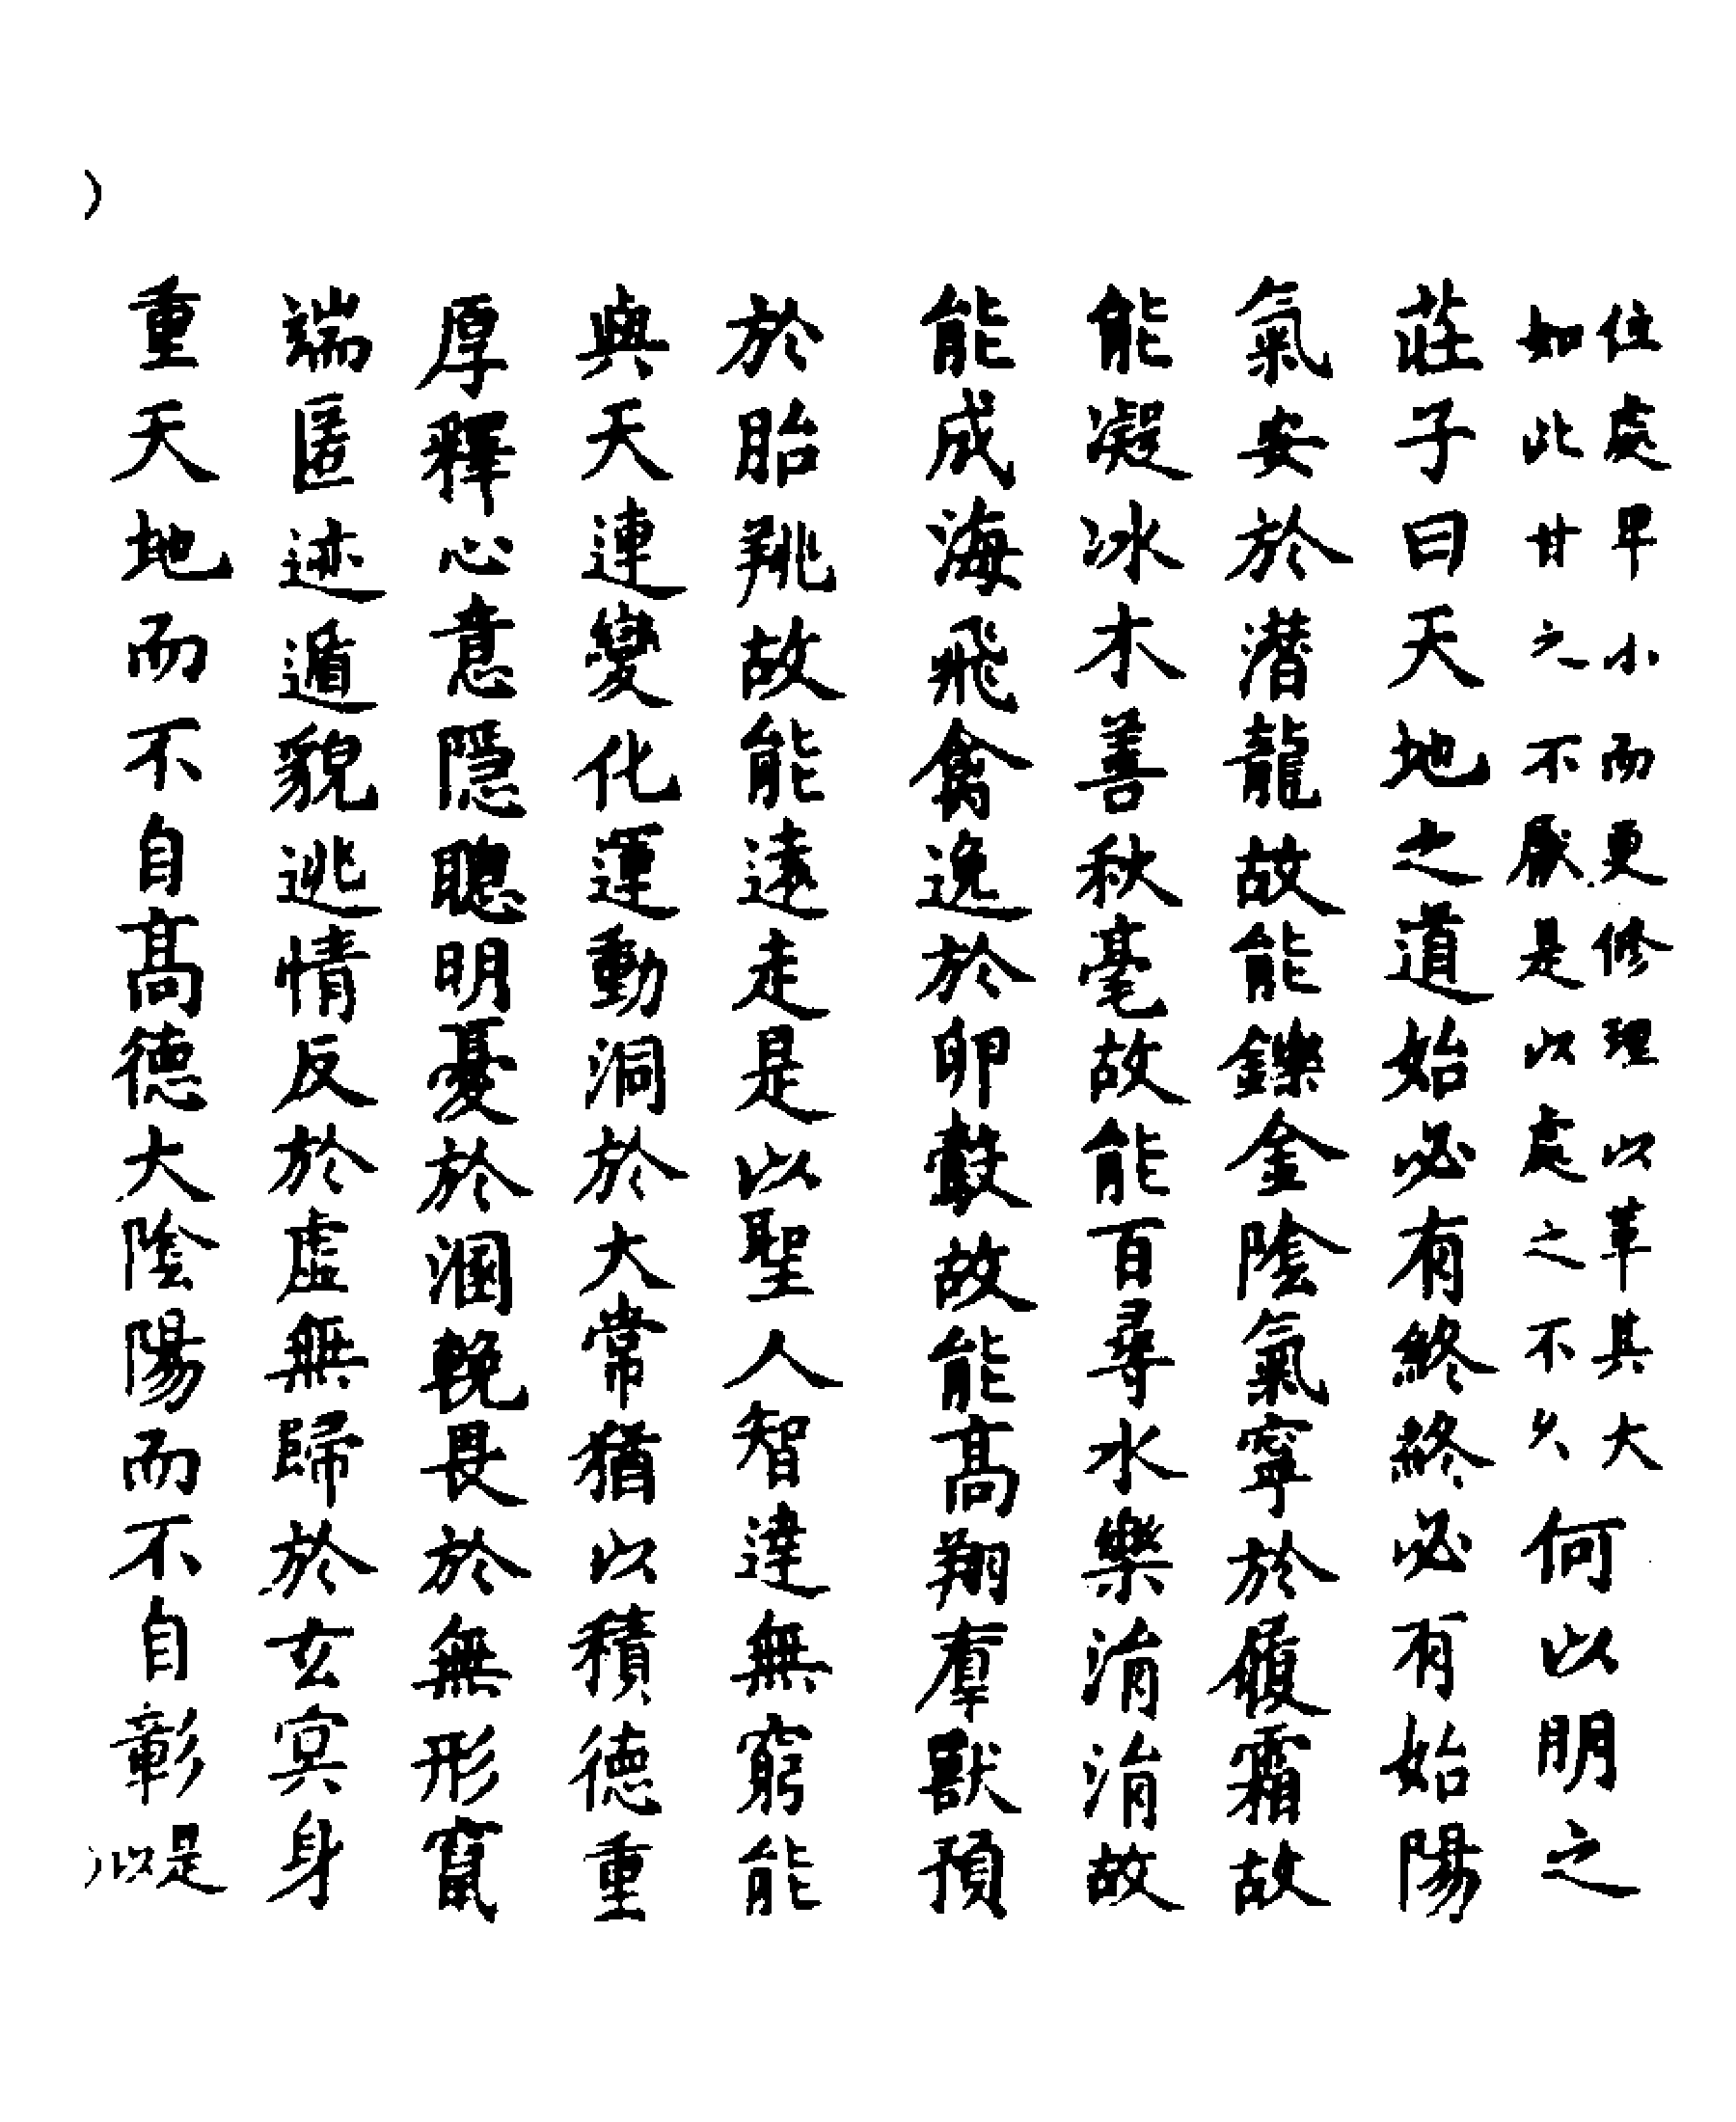 位處卑小而更修理以革其大
如此甘之不厭是以處之不久何以明之
莊子曰天地之道始必有終終必有始陽
氣安於潛龍故能鑠金陰氣寧於履霜故
能凝冰木善秋毫故能百尋水樂涓涓故
能成海飛禽逸於卵鷇故能高翔羣獸預
於胎𦍩故能遠走是以聖人智達無窮能
與天連變化運動洞於大常猶以積德重
厚釋心意隱聰明憂於溷輓畏於無形竄
端匿迹遁貌逃情反於虛無歸於玄冥身
重天地而不自高德大陰陽而不自彰是
以